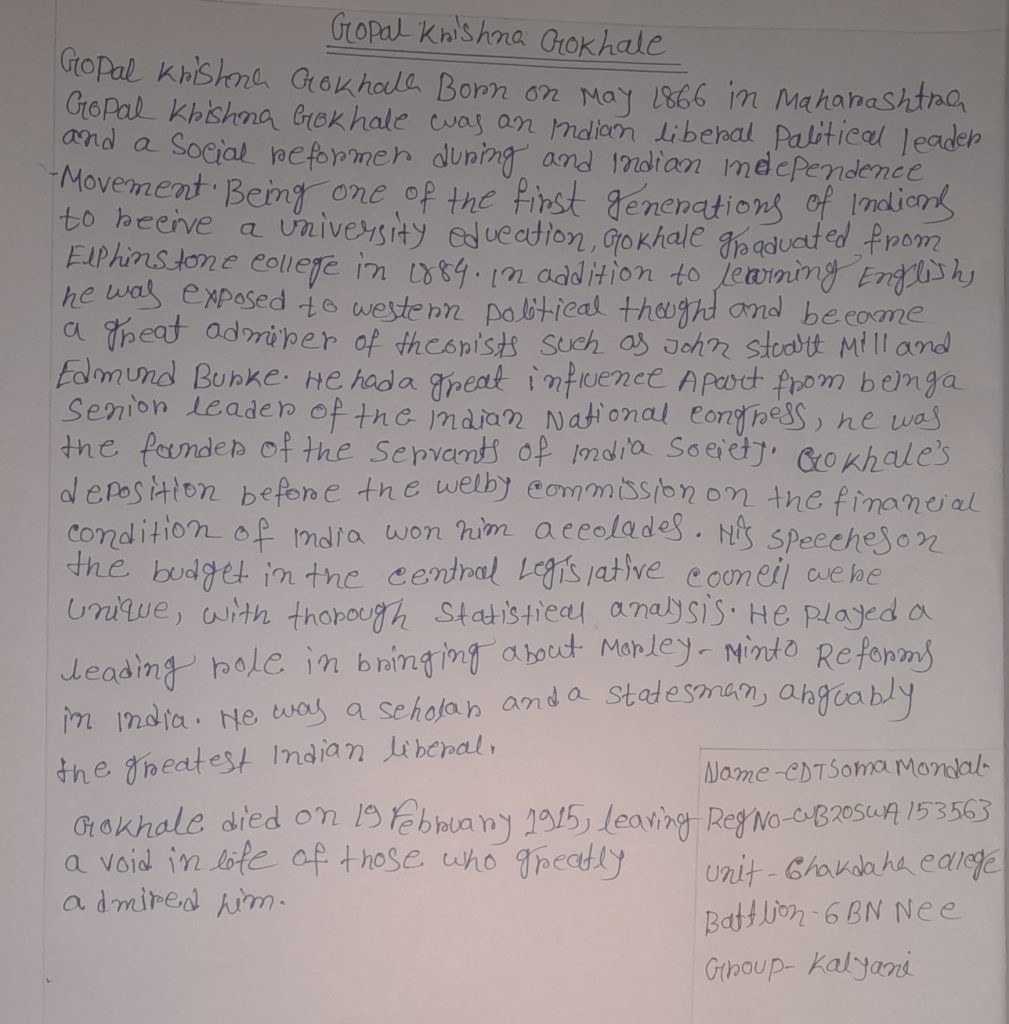 Gopal Krishna Gokhale
Gopal Krishna Gokhale Born on May 1866 in Maharashtra
Gopal Krishna Gokhale was an Indian liberal Palitical leader
and a Social reformer during and Indian independence
Movement. Being one of the first generations of Indians
to receive a university education, Gokhale graduated from
Elphinstone college in 1884. In addition to learning English,
he was exposed to western political thought and became
a great admirer of theorists such as John Stuart Mill and
Edmund Burke. He had a great influence Apart from being a
Senior leader of the Indian National congress, he was
the founder of the Servants of India Society. Gokhale's
deposition before the welby commission on the financial
condition of India won him accolades. His speeches on
the budget in the central Legislative council were
unique, with thorough Statistical analysis. He played a
leading role in bringing about Morley-Minto Reforms
in India. He was a scholar and a statesman, arguably
the greatest Indian liberal.
Gokhale died on 19 February 1915, leaving
a void in life of those who greatly
admired him.
Name - CDT Soma Mondal
Reg No - WB20SWA153563
Unit - Chakdaha college
Battlion - 6 BN Ncc
Group - Kalyani